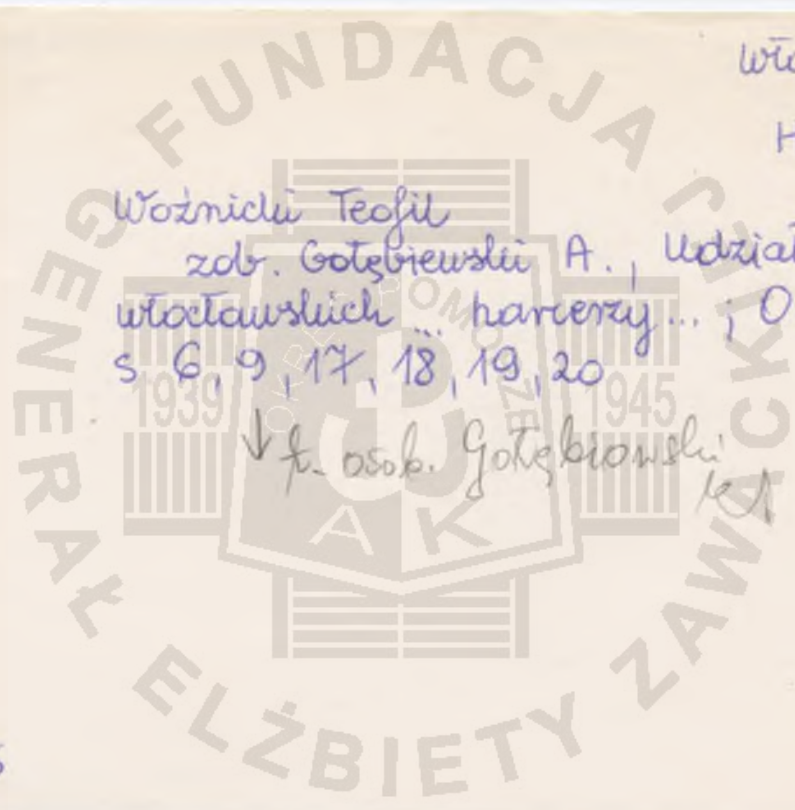 Woźnicki Teofil
zob. Gołębiewski A., Udział
włocławskich ... harcerzy ... ; O
s 6, 9, 17, 18, 19, 20
↓ t. osob. Gołębiowski
FUNDACJA GENERAŁ ELŻBIETY ZAWACKIEJ
OKRĘG POMORZE
1939 1945
AK